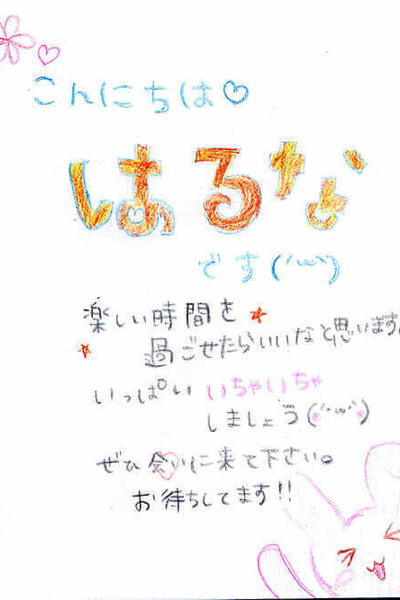 こんにちは♡
はるな
です(´ω`)
楽しい時間を
過ごせたらいいなと思います。
いっぱい いちゃいちゃ
しましょう(´ω`)
ぜひ会いに来て下さい。
お待ちしてます!!